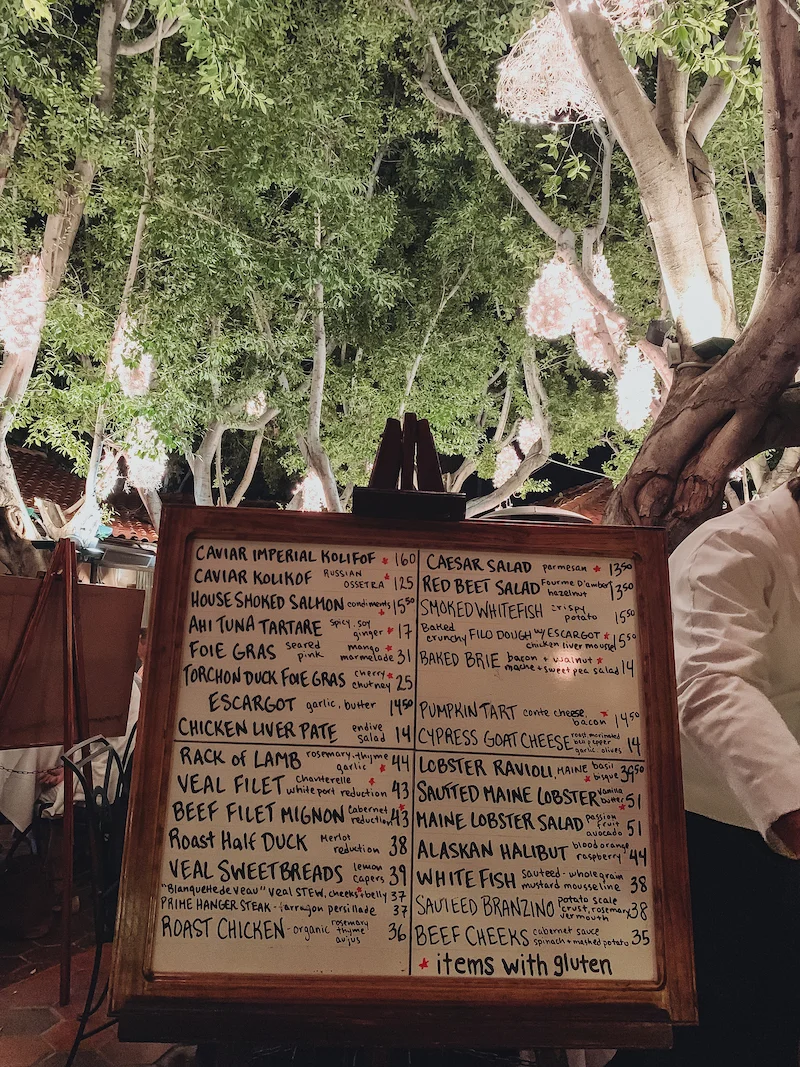 CAVIAR IMPERIAL KOLIFOF * 160
CAVIAR KOLIKOF RUSSIAN OSSETRA * 125
HOUSE SMOKED SALMON condiments * 15⁵⁰
AHI TUNA TARTARE spicy, soy ginger * 17
FOIE GRAS seared pink mango * marmelade 31
TORCHON DUCK FOIE GRAS cherry * chutney 25
ESCARGOT garlic, butter 14⁵⁰
CHICKEN LIVER PATE endive salad 14
RACK OF LAMB rosemary, thyme garlic * 44
VEAL FILET Chanterelle * white port reduction 43
BEEF FILET MIGNON Cabernet * reduction 43
Roast Half DUCK Merlot reduction 38
VEAL SWEETBREADS lemon capers 39
"Blanquette de veau" veal STEW, cheeks * + belly 37
PRIME HANGER STEAK - tarragon persillade 37
ROAST CHICKEN - organic rosemary thyme au jus 36
CAESAR SALAD parmesan * 13⁵⁰
RED BEET SALAD Fourme D'ambert hazelnut 13⁵⁰
SMOKED WHITEFISH crispy potato 15⁵⁰
Baked crunchy FILO DOUGH w/ ESCARGOT * chicken liver mousse 15⁵⁰
BAKED BRIE bacon + walnut * mache + sweet pea salad 14
PUMPKIN TART comte cheese, bacon * 14⁵⁰
CYPRESS GOAT CHEESE roast, marinated bell pepper garlic, olives 14
LOBSTER RAVIOLI, MAINE basil * bisque 39⁵⁰
SAUTTED MAINE LOBSTER vanilla butter * 51
MAINE LOBSTER SALAD passion fruit avocado 51
ALASKAN HALIBUT blood orange raspberry * 44
WHITE FISH Sauteed - whole grain mustard mousseline 38
SAUTEED BRANZINO potato scale crust, rosemary vermouth 38
BEEF CHEEKS cabernet sauce spinach + mashed potato 35
* items with gluten